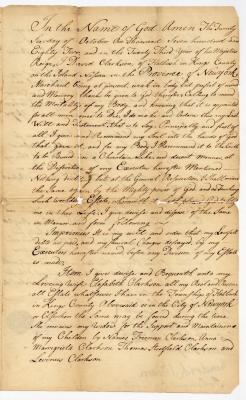 In the Name of God Amen The Twenty
day of October One Thousand Seven hundred and
Eighty Two, and in the Twenty Third Year of his Majesties
Reign, I David Clarkson, of Flatbush in Kings County
on the Island Nassau in the Province of New York
Merchant being of perfect mind
and Memory thanks be given to God therefore Calling to mind
the Mortality of my Body, and knowing that it is appointed
for all men once to Die, do make and Ordain this my last
Will and Testament, that is to Say, Principally and first of
all I give and Recommend my Soul into the hands of God
that gave it, and for my Body I Recommend it to the Earth
to be Buried in a Christian Like and decent Manner, at
the Discretion of my Executors hereafter Mentioned
Nothing doubting but at the General Resurrection I shall receive
the Same again by the Mighty power of God and as touching
such worldly Estate
me in this Life, I give devise and dispose of the Same
in Manner and form following
Imprimis It is my will and order that my Lawful
debts be paid, and my funeral Charges defrayed, by my
Executors hereafter named before any Division of my Effects
is made
Item I give devise and Bequeath unto my
Loving Wife Elizabeth Clarkson all my Real and
all Estate whatsoever I have in the Township of Flatbush
in Kings County aforesaid or in the City of New York
or Elsewhere the Same may be found during the time
She remains my Widow for the Support and Maintenance
of my Children by Names Freeman Clarkson, Anna
Margaretta Clarkson Thomas Streatfield Clarkson and
Levinus Clarkson